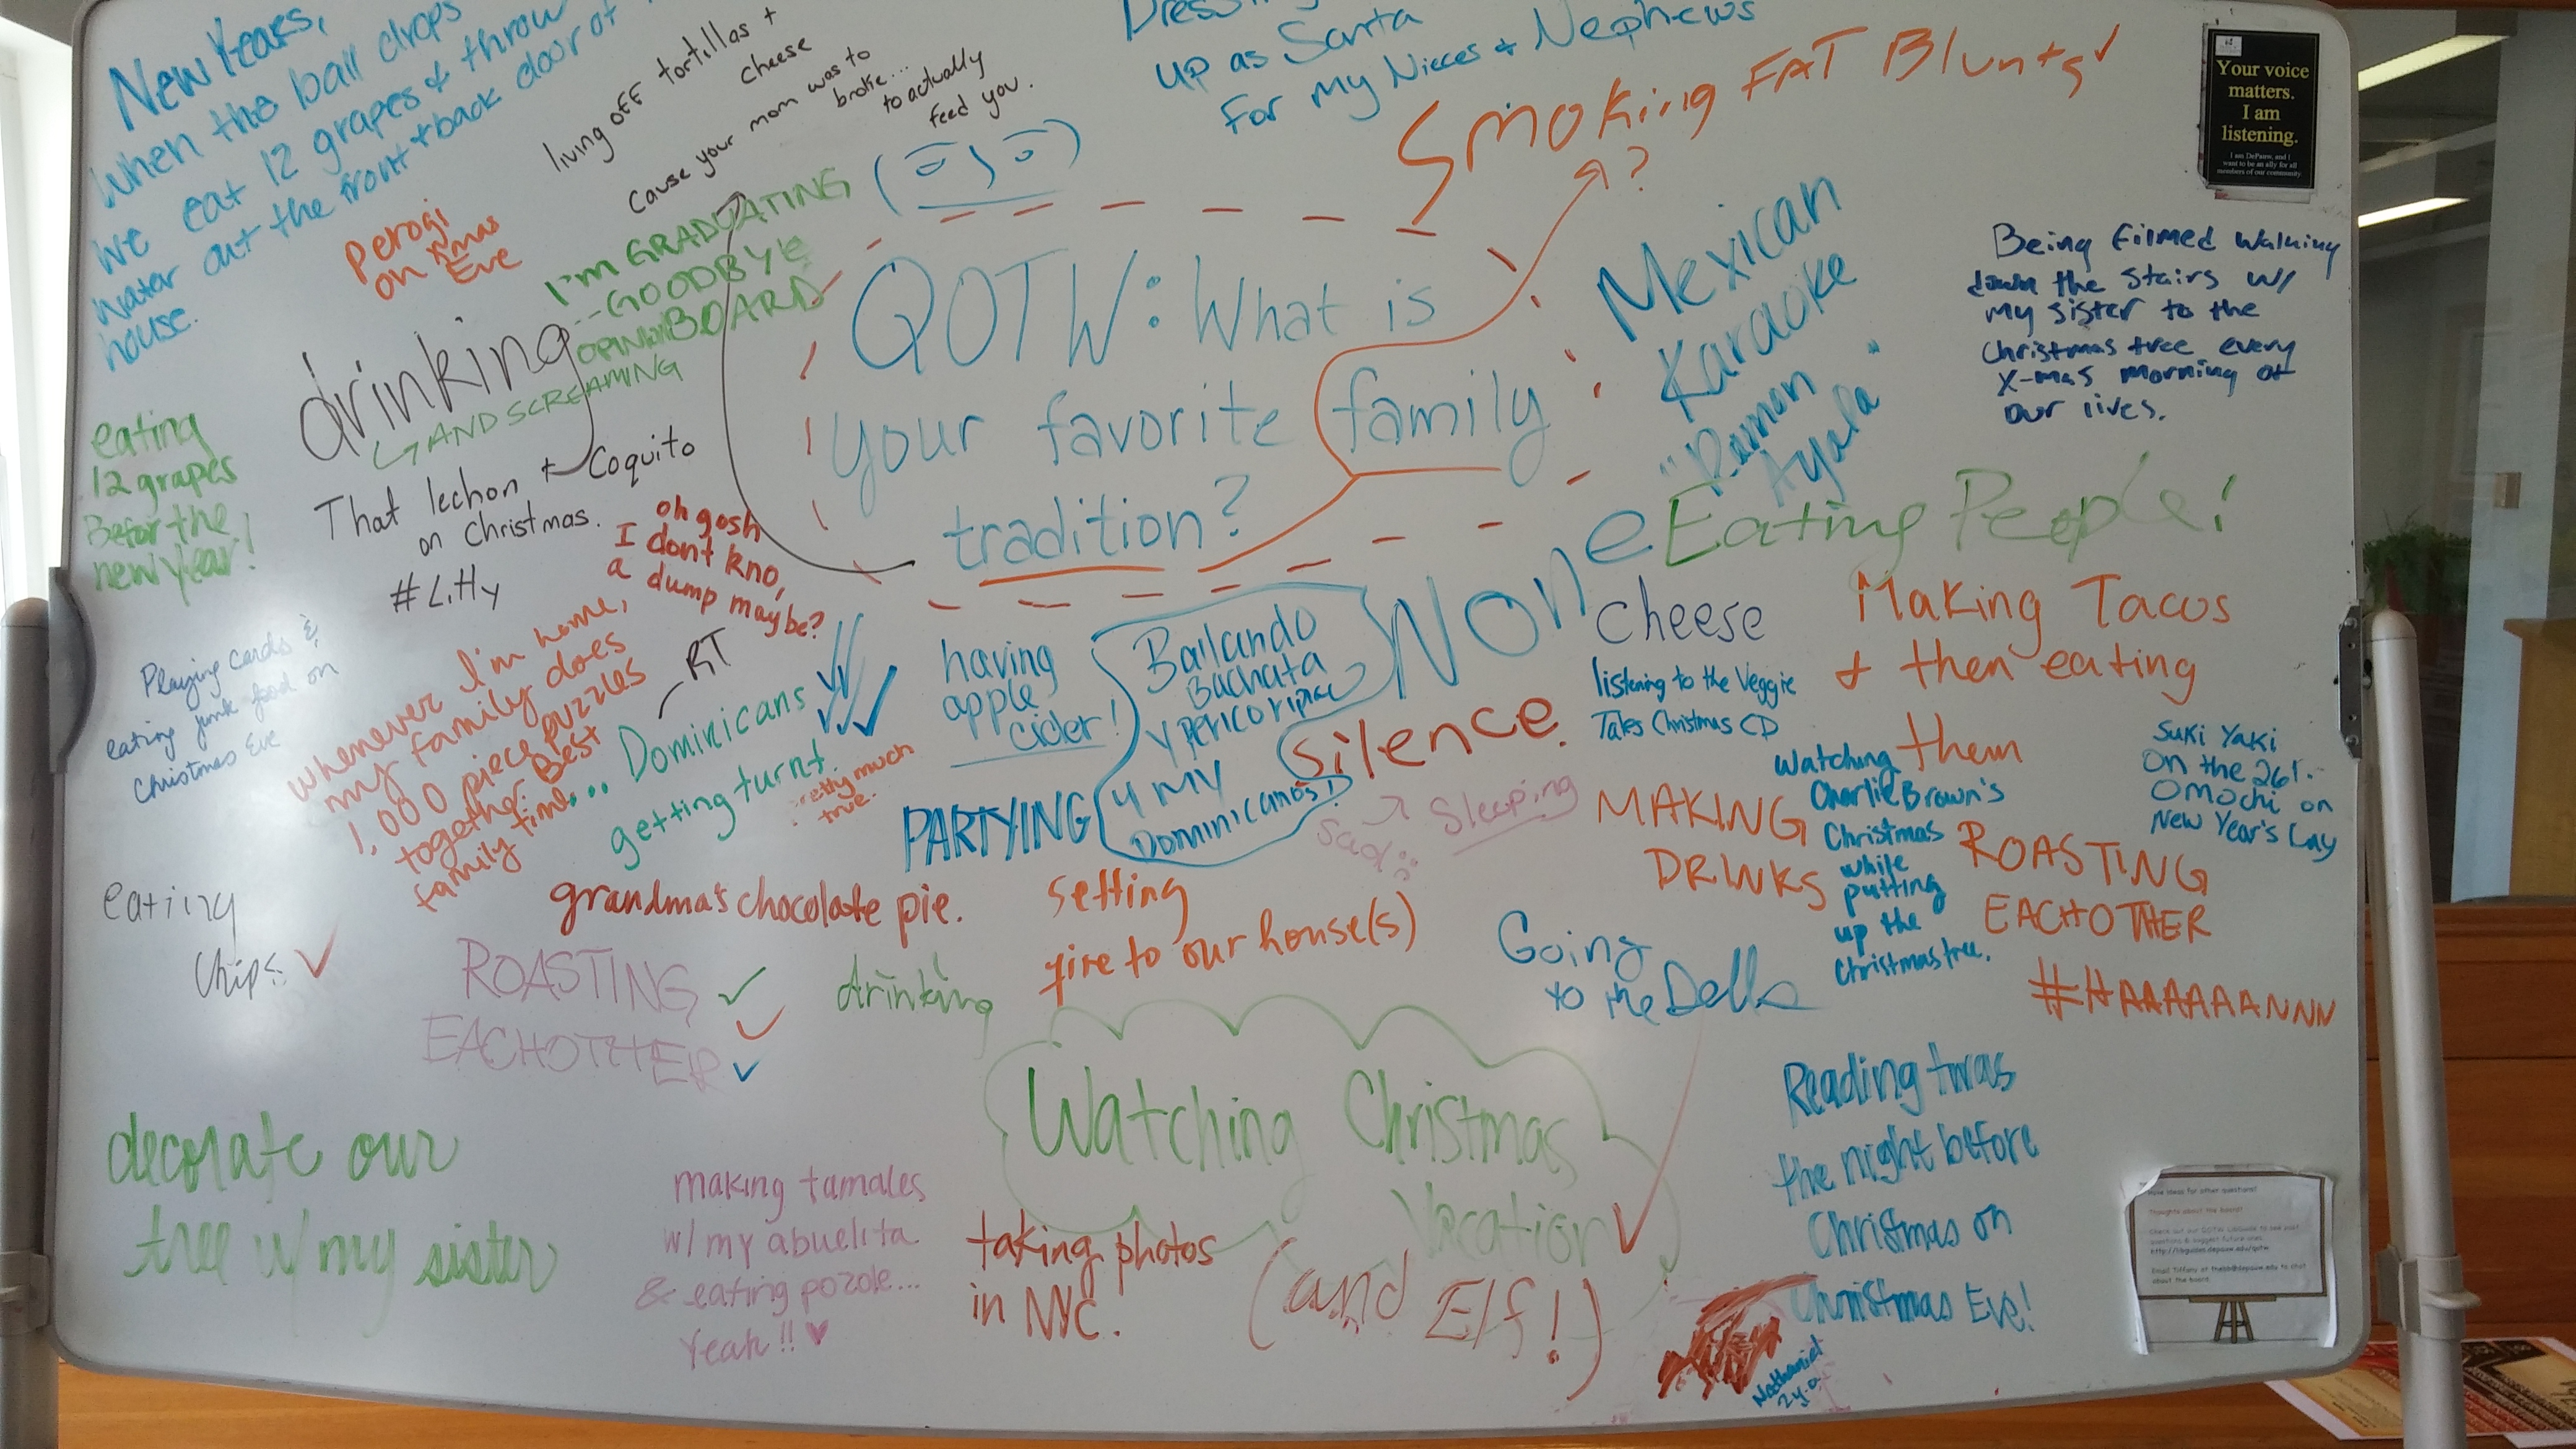 New Years,
When the ball drops
We eat 12 grapes & throw
water out the front + back door of
house.
living off tortillas +
cheese
cause your mom was to
broke...
to actually
feed you.
up as Santa
for my Nieces + Nephews
Smoking FAT Blunts
?
Your voice
matters.
I am
listening.
I am DePauw, and I
want to be an ally for all
members of our community
Perogi
on Xmas
Eve
I'm GRADUATING
GOODBYE
OPINION BOARD
drinking
AND SCREAMING
QOTW: What is
your favorite family
tradition?
Mexican
Karaoke
"Ramon
Ayala"
Being filmed walking
down the stairs w/
my sister to the
Christmas tree every
X-mas morning of
our lives.
eating
12 grapes
Befor the
new year!
That lechon + Coquito
on Christmas.
#Litty
oh gosh
I dont kno,
a dump maybe?
None
Eating People!
Cheese
Making Tacos
+ then eating
them
listening to the Veggie
Tales Christmas CD
Playing cards &
eating junk food on
Christmas Eve
whenever I'm home,
my family does
1,000 piece puzzles
together. Best
family time.
RT
... Dominicans
getting turnt.
pretty much
true.
having
apple
cider!
Bailando
Bachata
y perico ripiao
y my
Dominicanos!
PARTYING
Silence.
sad
Sleeping
MAKING
DRINKS
Watching
Charlie Brown's
Christmas
while
putting
up the
Christmas tree.
Suki Yaki
on the 26!
Omochi on
New Year's Day
ROASTING
EACHOTHER
#HAAAAAANNN
eating
chips
grandma's chocolate pie.
setting
fire to our house(s)
Going
to the Dells
ROASTING
EACHOTHER
drinking
Watching Christmas
Vacation
(and Elf!)
Reading twas
the night before
Christmas on
Christmas Eve!
decorate our
tree w/ my sister
making tamales
w/ my abuelita
& eating pozole...
Yeah!!
taking photos
in NYC.
Nathaniel
2 y.o.
Have ideas for other questions?
Thoughts about the board?